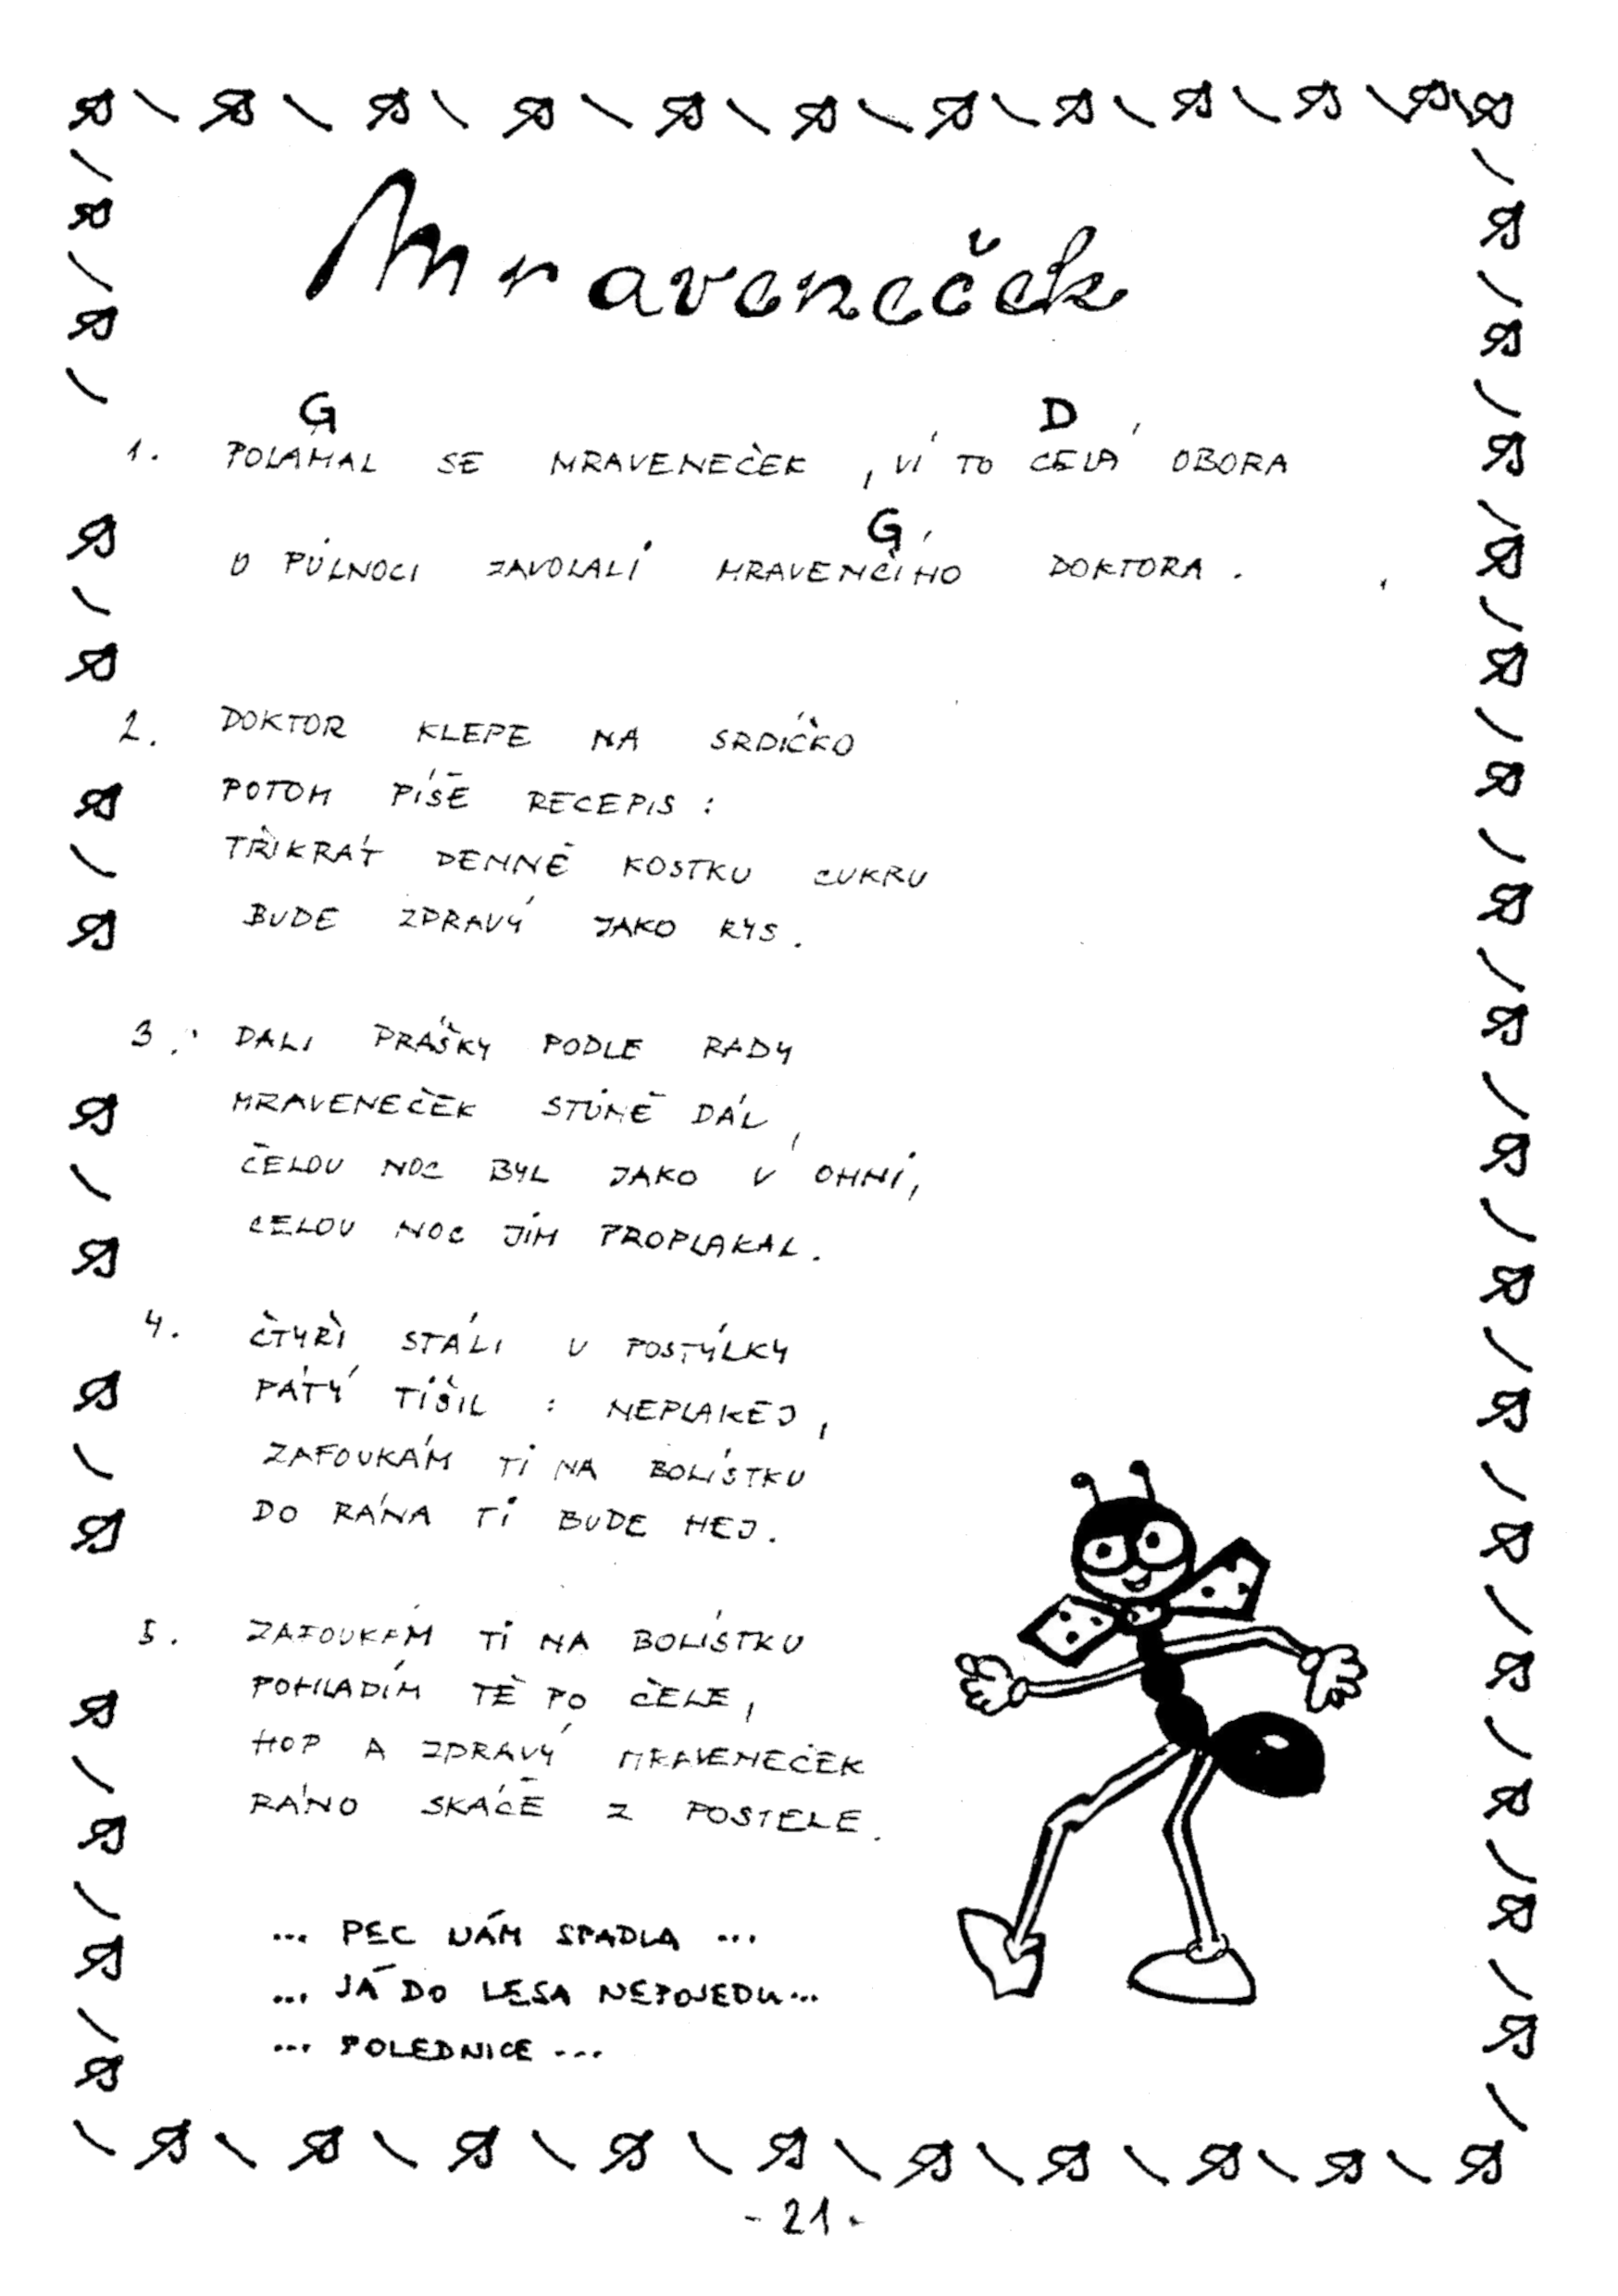 Mraveneček
G D
1. POLÁMAL SE MRAVENEČEK, VÍ TO CELÁ OBORA
G
O PŮLNOCI ZAVOLALI MRAVENČÍHO DOKTORA.
2. DOKTOR KLEPE NA SRDÍČKO
POTOM PÍŠE RECEPIS:
TŘIKRÁT DENNĚ KOSTKU CUKRU
BUDE ZDRAVÝ JAKO RYS.
3. DALI PRÁŠKY PODLE RADY
MRAVENEČEK STŮNĚ DÁL,
CELOU NOC BYL JAKO V OHNI,
CELOU NOC JIM PROPLAKAL.
4. ČTYŘI STÁLI U POSTÝLKY
PÁTÝ TIŠIL : NEPLAKEJ,
ZAFOUKÁM TI NA BOLÍSTKU
DO RÁNA TI BUDE HEJ.
5. ZAFOUKÁM TI NA BOLÍSTKU
POHLADÍM TĚ PO ČELE,
HOP A ZDRAVÝ MRAVENEČEK
RÁNO SKÁČE Z POSTELE.
... PEC NÁM SPADLA ...
... JÁ DO LESA NEPOJEDU...
... POLEDNICE ...
- 21 -